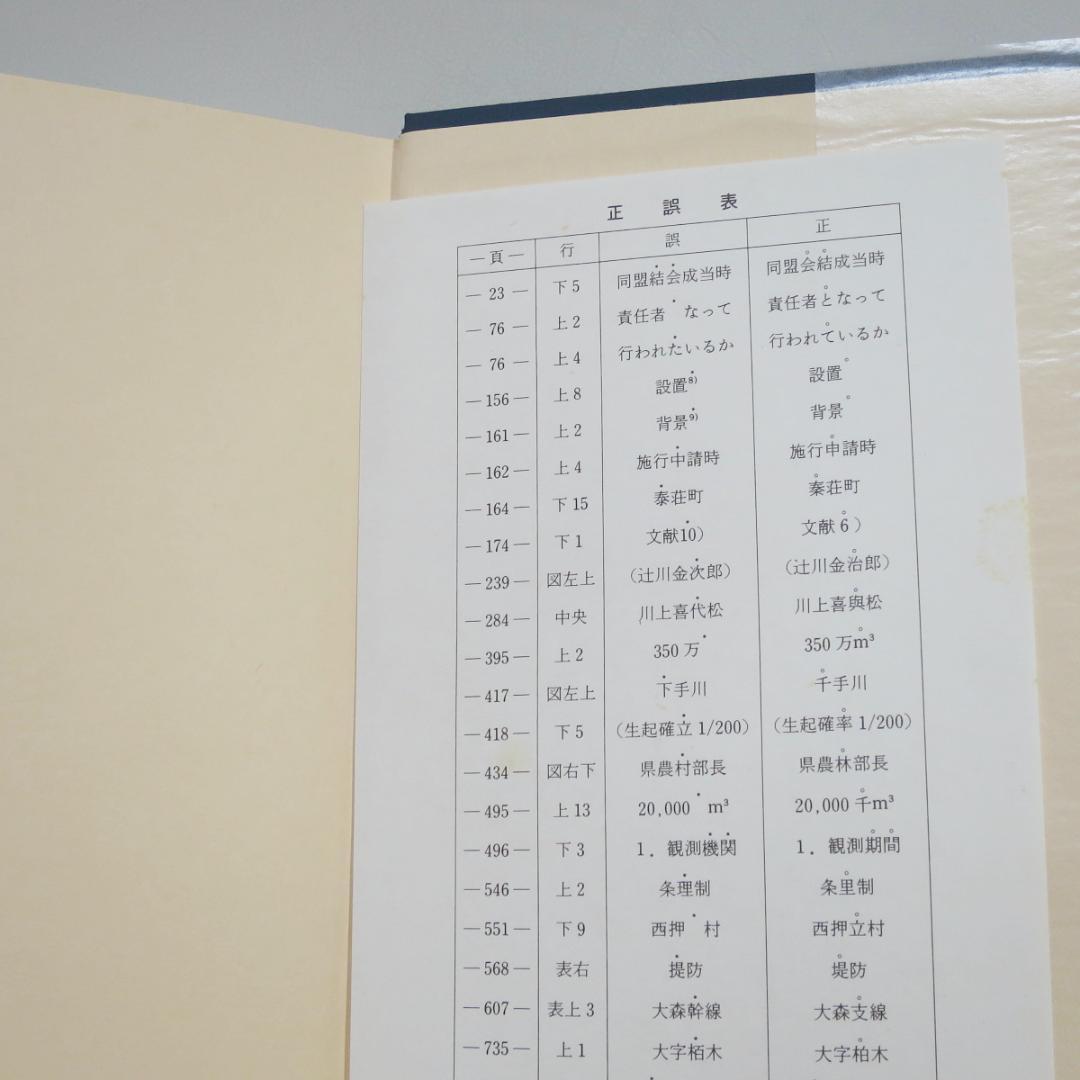 正誤表
―頁― 行 誤 正
―23― 下5 同盟結会成当時 同盟会結成当時
―76― 上2 責任者 なって 責任者となって
―76― 上4 行われたいるか 行われているか
―156― 上8 設置⁸⁾ 設置
―161― 上2 背景⁹⁾ 背景
―162― 上4 施行中請時 施行申請時
―164― 下15 泰荘町 秦荘町
―174― 下1 文献10) 文献6)
―239― 図左上 (辻川金次郎) (辻川金治郎)
―284― 中央 川上喜代松 川上喜與松
―395― 上2 350万 350万m³
―417― 図左上 下手川 千手川
―418― 下5 (生起確立1/200) (生起確率1/200)
―434― 図右下 県農村部長 県農林部長
―495― 上13 20,000 m³ 20,000千m³
―496― 下3 1．観測機関 1．観測期間
―546― 上2 条理制 条里制
―551― 下9 西押 村 西押立村
―568― 表右 提防 堤防
―607― 表上3 大森幹線 大森支線
―735― 上1 大字栢木 大字柏木